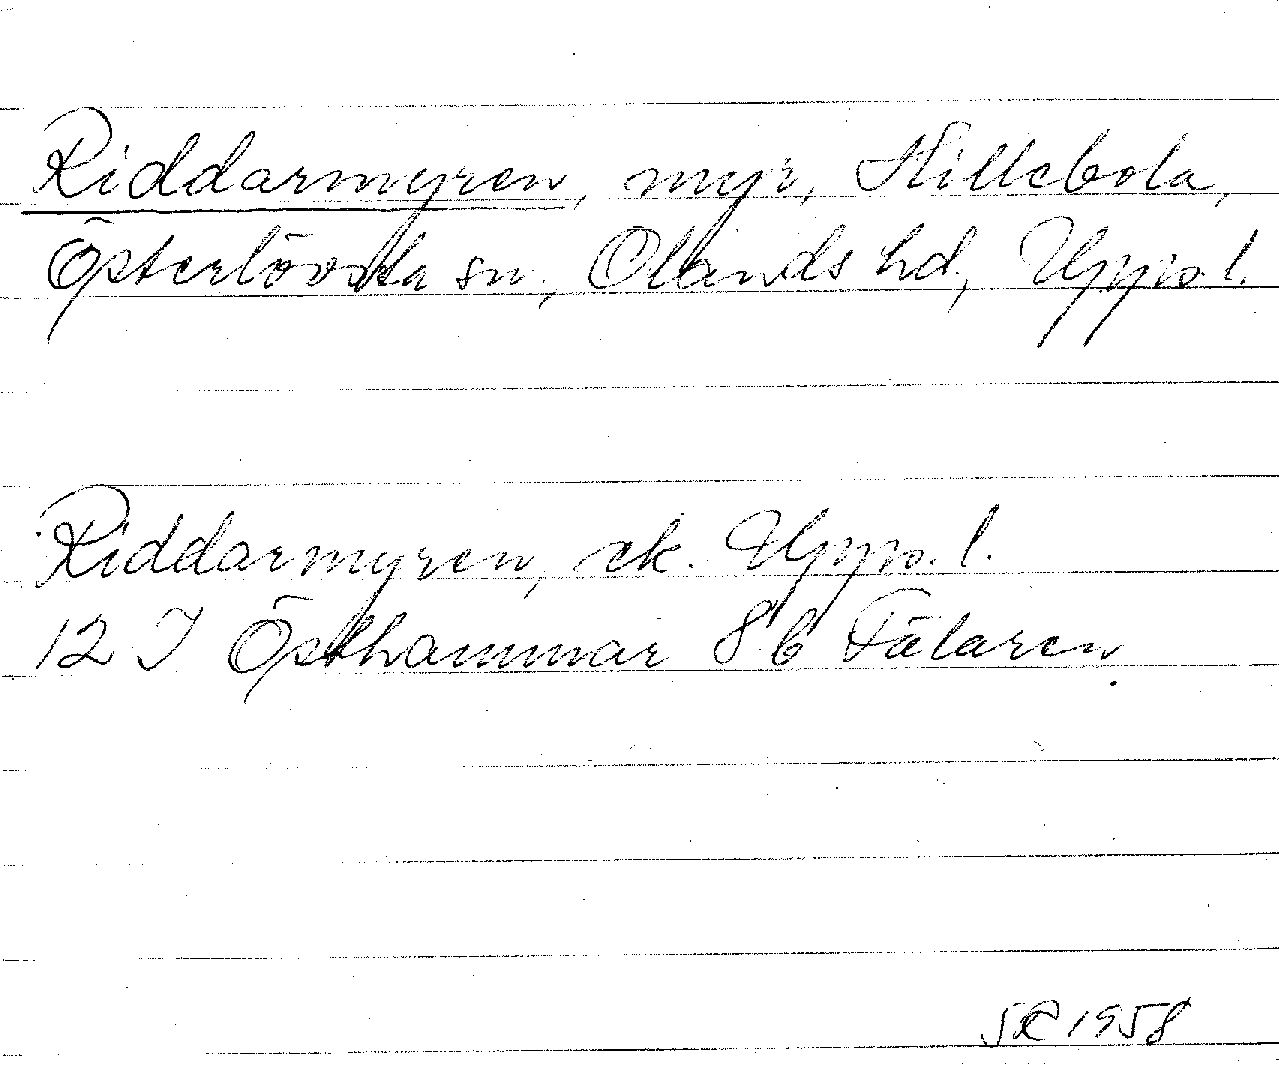 Riddarmyren, myr, Hillebola,
Österlövsta sn, Olands hd, Uppl.
Riddarmyren, ek. Uppl.
12 I Östhammar 8 b Fälaren
SR 1958